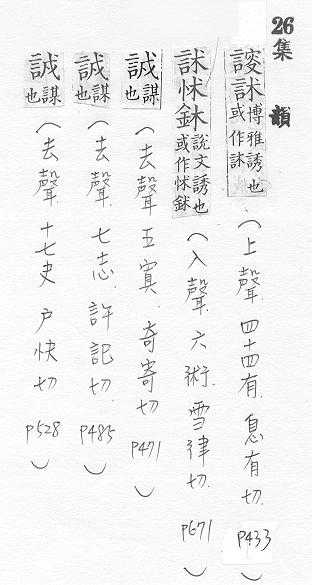 26 集韻
訹 博雅誘也 或作訹 (上聲 四十四有 息有切 P433)
訹怵鉥 說文誘也 或作怵鉥 (入聲 六術 雪律切 P671)
謀也 (去聲 五寘 奇寄切 P471)
謀也 (去聲 七志 許記切 P485)
謀也 (去聲 十七夬 戶快切 P528)